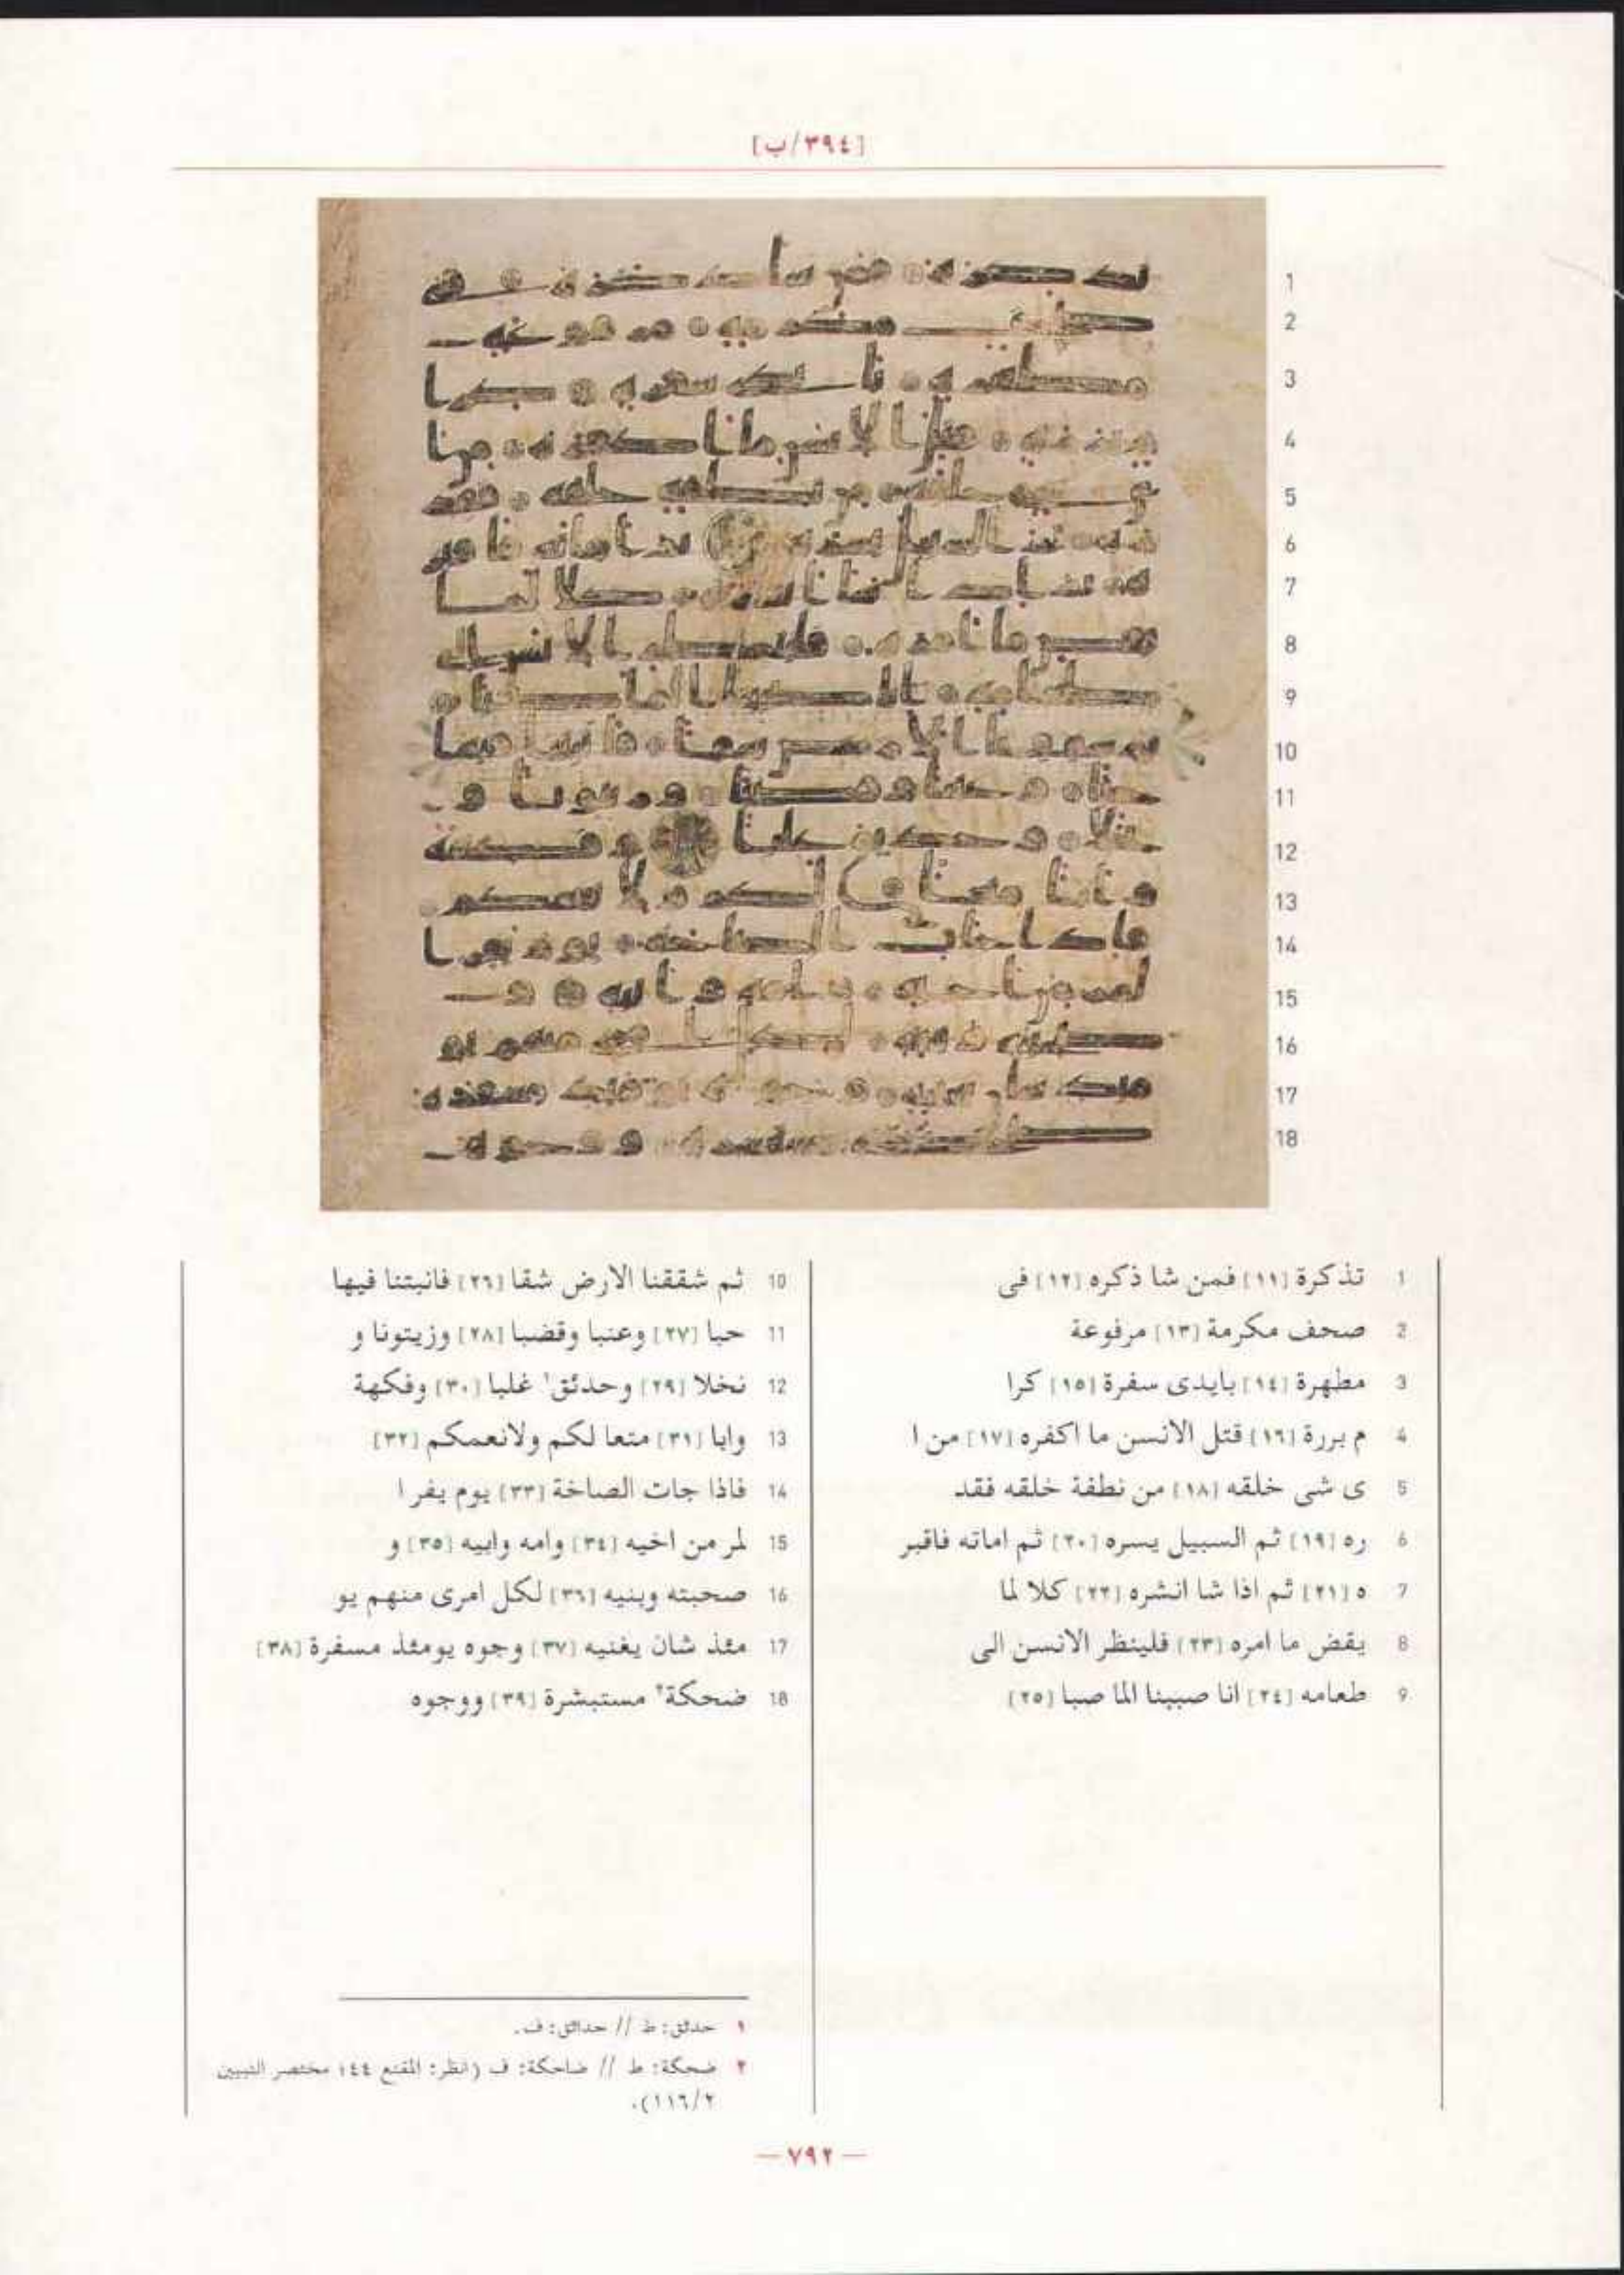 [٣٩٤/ب]
1 تذكرة [١١] فمن شا ذكره [١٢] فى
2 صحف مكرمة [١٣] مرفوعة
3 مطهرة [١٤] بايدى سفرة [١٥] كرا
4 م بررة [١٦] قتل الانسن ما اكفره [١٧] من ا
5 ى شى خلقه [١٨] من نطفة خلقه فقد
6 ره [١٩] ثم السبيل يسره [٢٠] ثم اماته فاقبر
7 ه [٢١] ثم اذا شا انشره [٢٢] كلا لما
8 يقض ما امره [٢٣] فلينظر الانسن الى
9 طعامه [٢٤] انا صببنا الما صبا [٢٥]
10 ثم شققنا الارض شقا [٢٦] فانبتنا فيها
11 حبا [٢٧] وعنبا وقضبا [٢٨] وزيتونا و
12 نخلا [٢٩] وحدئق١ غلبا [٣٠] وفكهة
13 وابا [٣١] متعا لكم ولانعمكم [٣٢]
14 فاذا جات الصاخة [٣٣] يوم يفر ا
15 لمر من اخيه [٣٤] وامه وابيه [٣٥] و
16 صحبته وبنيه [٣٦] لكل امرى منهم يو
17 مئذ شان يغنيه [٣٧] وجوه يومئذ مسفرة [٣٨]
18 ضحكة٢ مستبشرة [٣٩] ووجوه
١ حدئق: ط // حدائق: ف.
٢ ضحكة: ط // ضاحكة: ف (انظر: المقنع ٤٤؛ مختصر التبيين
٢/١١٦).
— ٧٩٢ —